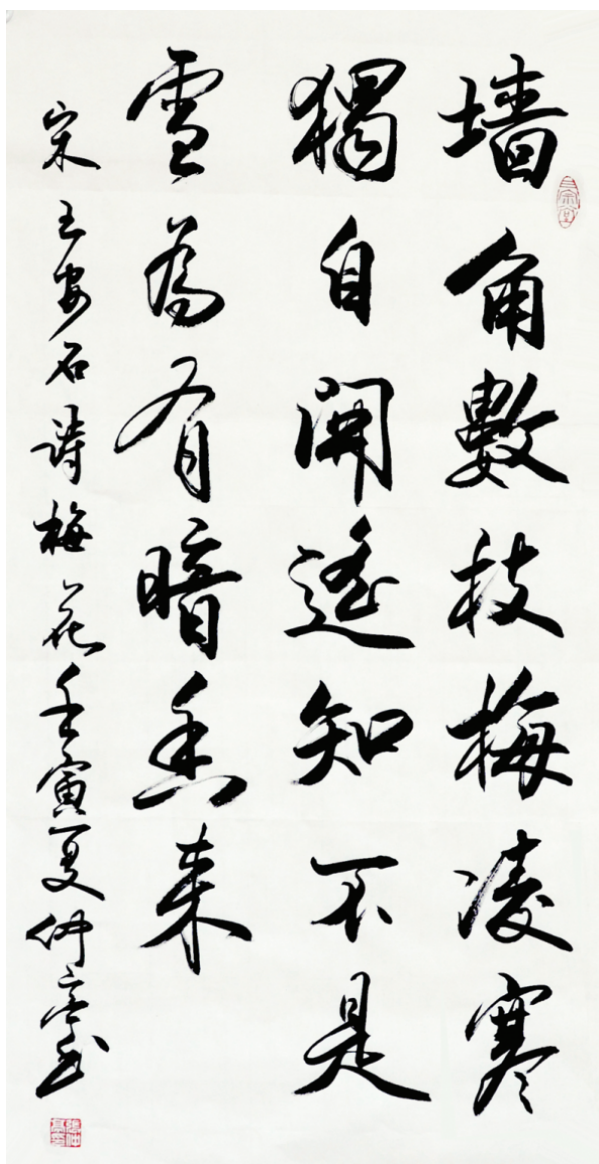 墙角數枝梅凌寒
獨自開遥知不是
雪為有暗香来
宋王安石詩梅花壬寅夏仲亭书